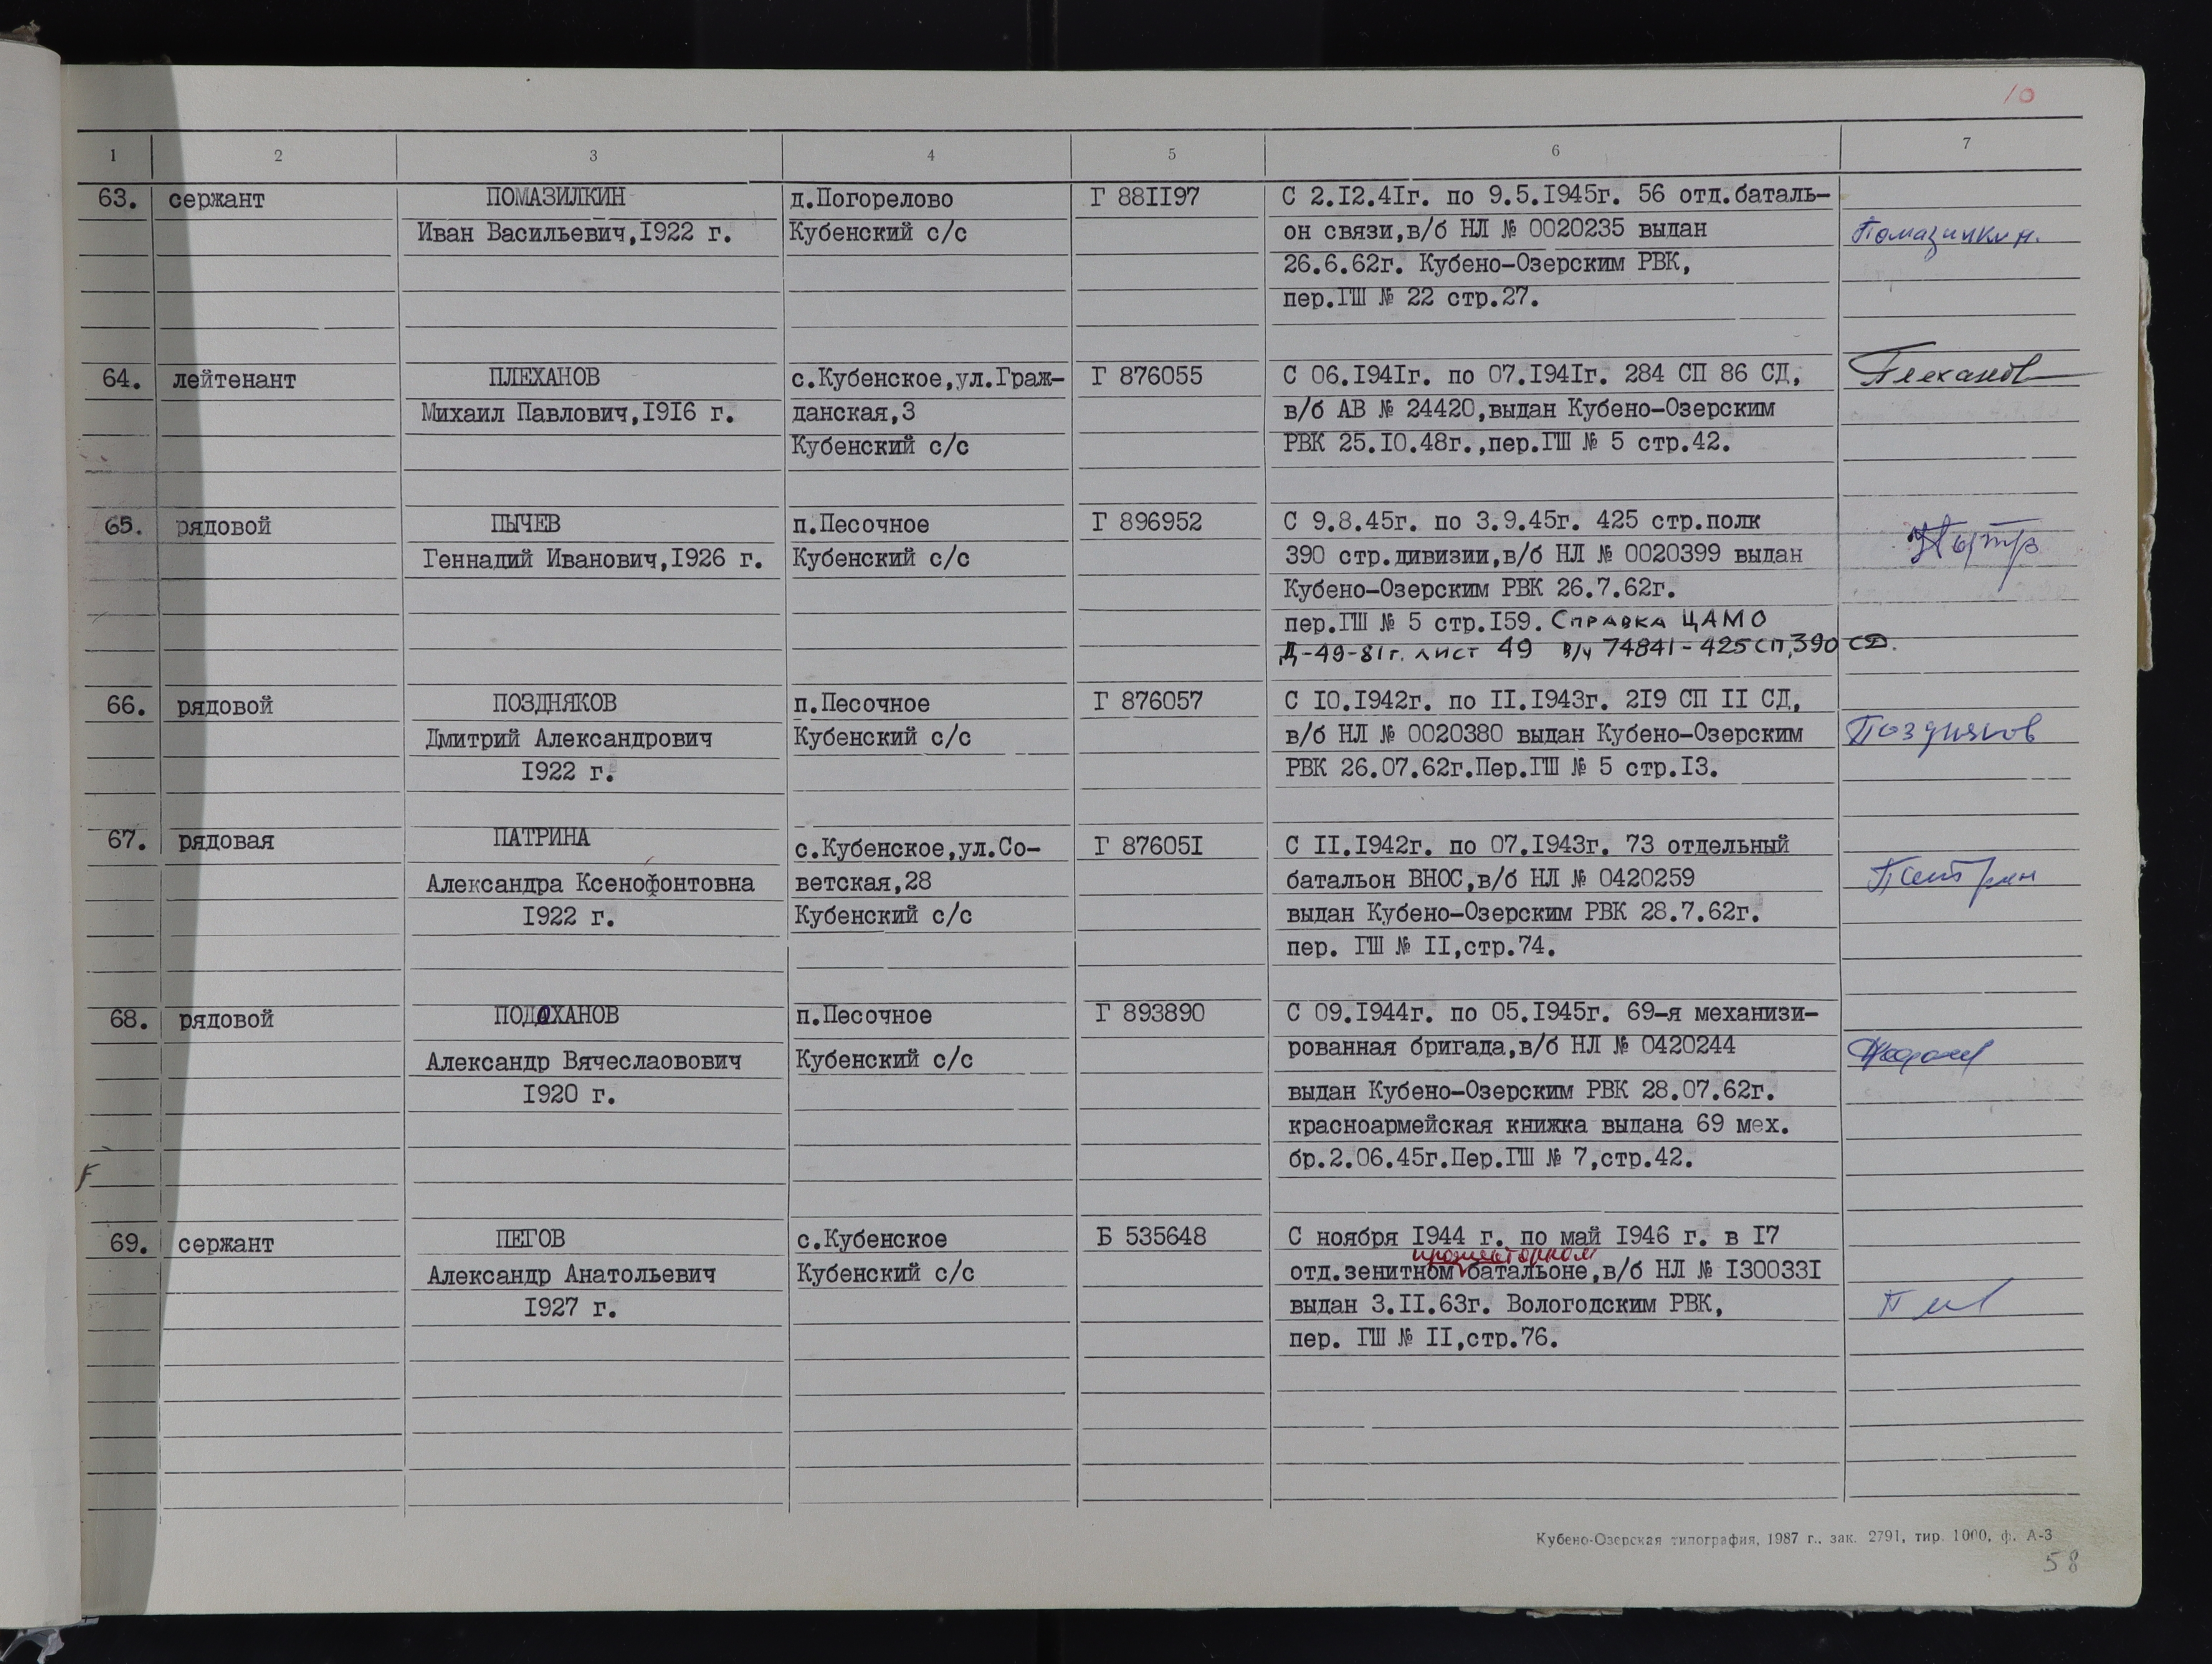 10
1 2 3 4 5 6 7
63. сержант ПОМАЗИЛКИН д.Погорелово Г 881197 С 2.12.41г. по 9.5.1945г. 56 отд.баталь-
Иван Васильевич,1922 г. Кубенский с/с он связи,в/б НЛ № 0020235 выдан Помазилкин.
26.6.62г. Кубено-Озерским РВК,
пер.ГШ № 22 стр.27.
64. лейтенант ПЛЕХАНОВ с.Кубенское,ул.Граж- Г 876055 С 06.1941г. по 07.1941г. 284 СП 86 СД, Плеханов
Михаил Павлович,1916 г. данская,3 в/б АВ № 24420,выдан Кубено-Озерским
Кубенский с/с РВК 25.10.48г.,пер.ГШ № 5 стр.42.
65. рядовой ПЫЧЕВ п.Песочное Г 896952 С 9.8.45г. по 3.9.45г. 425 стр.полк
Геннадий Иванович,1926 г. Кубенский с/с 390 стр.дивизии,в/б НЛ № 0020399 выдан
Кубено-Озерским РВК 26.7.62г.
пер.ГШ № 5 стр.159. Справка ЦАМО
Д-49-81г. лист 49 в/ч 74841-425 сп,390 СД.
66. рядовой ПОЗДНЯКОВ п.Песочное Г 876057 С 10.1942г. по 11.1943г. 219 СП 11 СД,
Дмитрий Александрович Кубенский с/с в/б НЛ № 0020380 выдан Кубено-Озерским Поздняков
1922 г. РВК 26.07.62г.Пер.ГШ № 5 стр.13.
67. рядовая ПАТРИНА с.Кубенское,ул.Со- Г 876051 С 11.1942г. по 07.1943г. 73 отдельный
Александра Ксенофонтовна ветская,28 батальон ВНОС,в/б НЛ № 0420259 Патрин
1922 г. Кубенский с/с выдан Кубено-Озерским РВК 28.7.62г.
пер. ГШ № 11,стр.74.
68. рядовой ПОДОХАНОВ п.Песочное Г 893890 С 09.1944г. по 05.1945г. 69-я механизи-
Александр Вячеслаовович Кубенский с/с рованная бригада,в/б НЛ № 0420244
1920 г. выдан Кубено-Озерским РВК 28.07.62г.
красноармейская книжка выдана 69 мех.
бр.2.06.45г.Пер.ГШ № 7,стр.42.
69. сержант ПЕГОВ с.Кубенское Б 535648 С ноября 1944 г. по май 1946 г. в 17
прожекторном
Александр Анатольевич Кубенский с/с отд.зенитном батальоне,в/б НЛ № 1300331
1927 г. выдан 3.11.63г. Вологодским РВК,
пер. ГШ № 11,стр.76.
Кубено-Озерская типография, 1987 г., зак. 2791, тир. 1000, ф. А-3
58